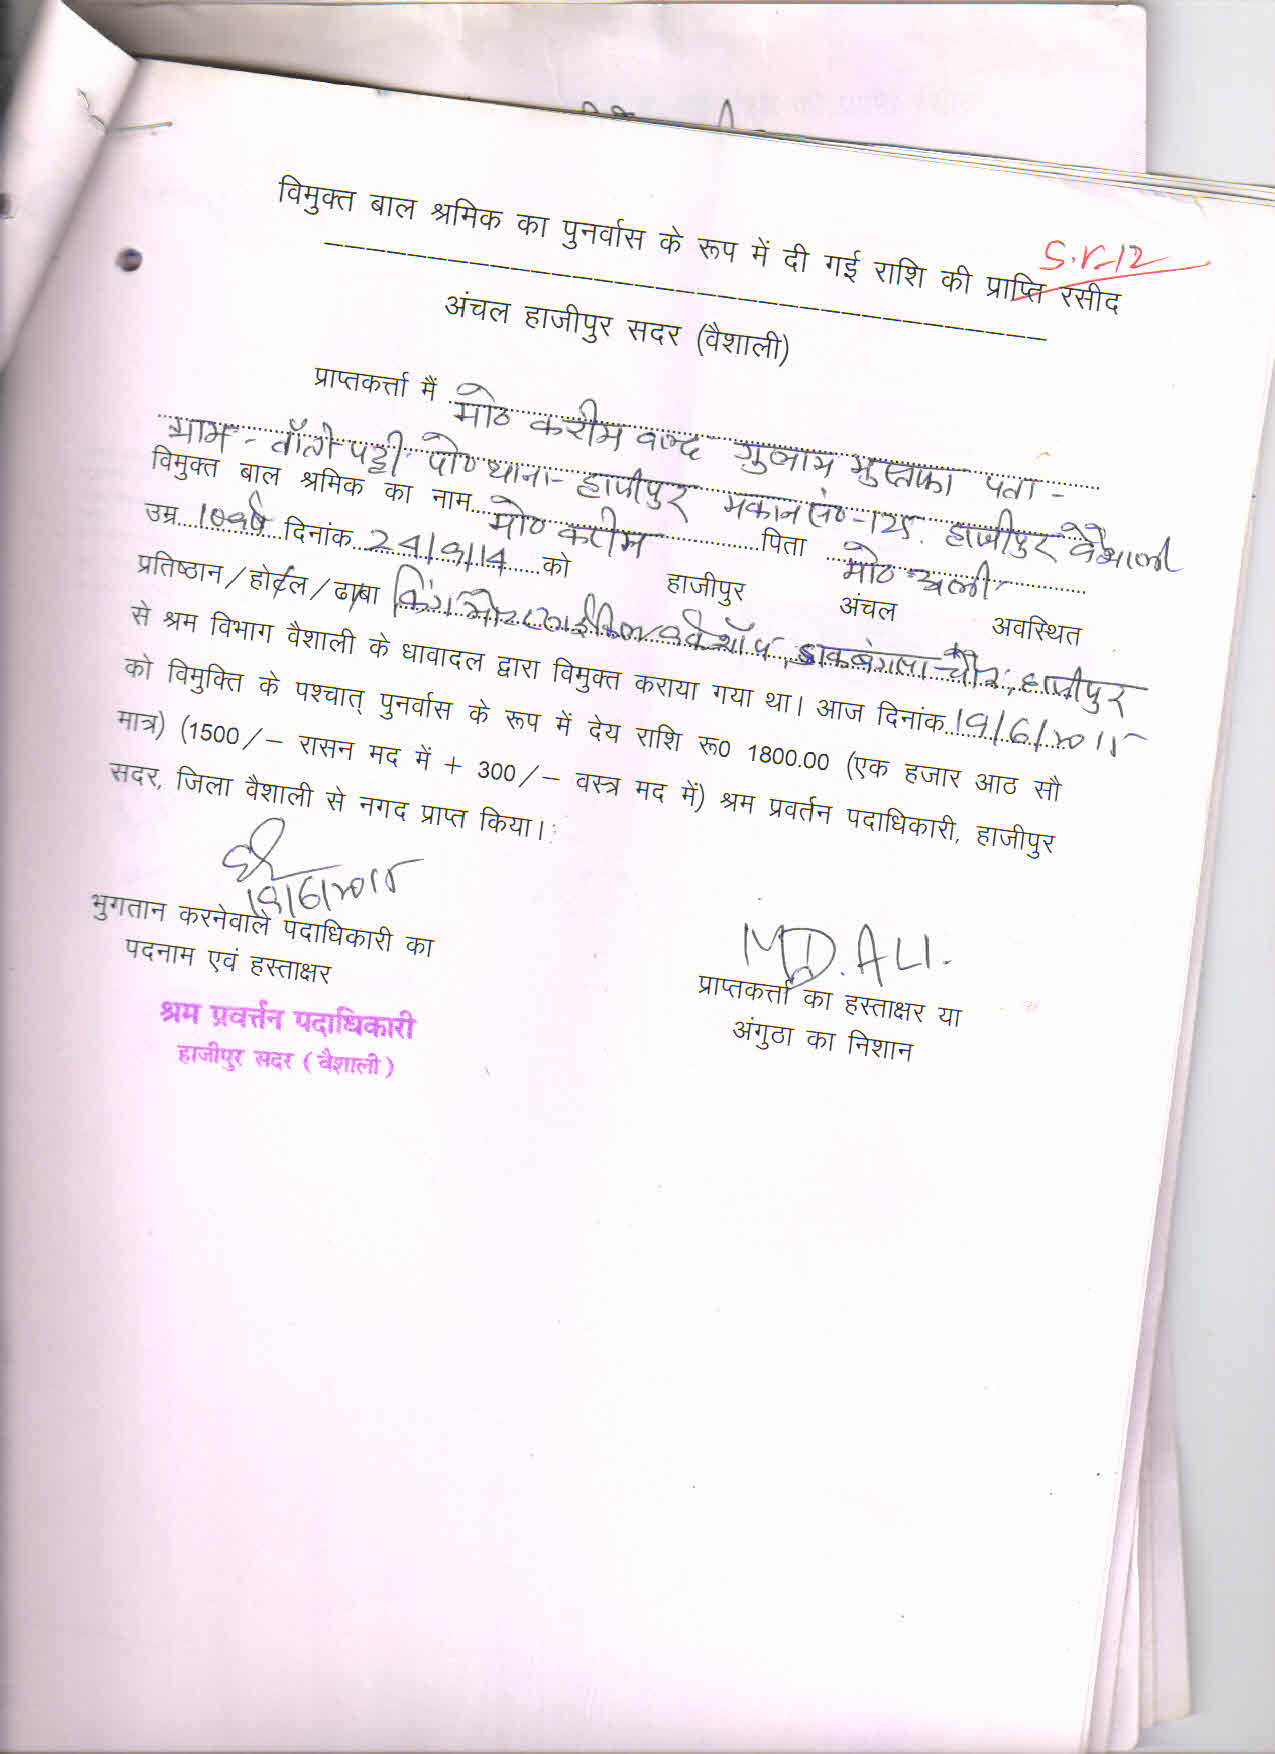 S.r-12
विमुक्त बाल श्रमिक का पुनर्वास के रूप में दी गई राशि की प्राप्ति रसीद
अंचल हाजीपुर सदर (वैशाली)
प्राप्तकर्त्ता मैं मो० करीम वल्द गुलाम मुस्तफा पता -
ग्राम - पट्टी पो० थाना - हाजीपुर मकान सं०-125. हाजीपुर वैशाली
विमुक्त बाल श्रमिक का नाम मो० करीम पिता मो० अली
उम्र 10 वर्ष दिनांक 24/9/14 को हाजीपुर अंचल अवस्थित
प्रतिष्ठान/होटल/ढाबा किंग मोटरसाईकिल वर्कशॉप, डाकबंगला चौक, हाजीपुर
से श्रम विभाग वैशाली के धावादल द्वारा विमुक्त कराया गया था। आज दिनांक 19/6/2015
को विमुक्ति के पश्चात् पुनर्वास के रूप में देय राशि रू0 1800.00 (एक हजार आठ सौ
मात्र) (1500/– रासन मद में + 300/– वस्त्र मद में) श्रम प्रवर्तन पदाधिकारी, हाजीपुर
सदर, जिला वैशाली से नगद प्राप्त किया।
19/6/2015
भुगतान करनेवाले पदाधिकारी का
पदनाम एवं हस्ताक्षर
श्रम प्रवर्त्तन पदाधिकारी
हाजीपुर सदर (वैशाली)
MD. ALI.
प्राप्तकर्त्ता का हस्ताक्षर या
अंगुठा का निशान